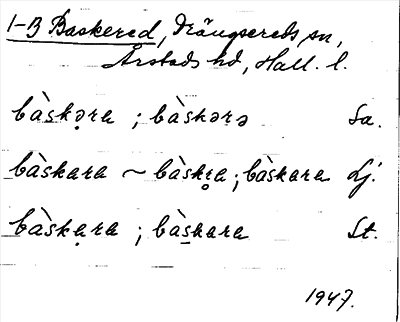 1-B Baskered, Drängsereds sn,
Årstads hd, Hall. l.
bàskə̣ra ; bàskərə Sa.
bàskara ~ bàskr̥a ; bàskara Lj.
bàskạra ; bàskara St.
1947.